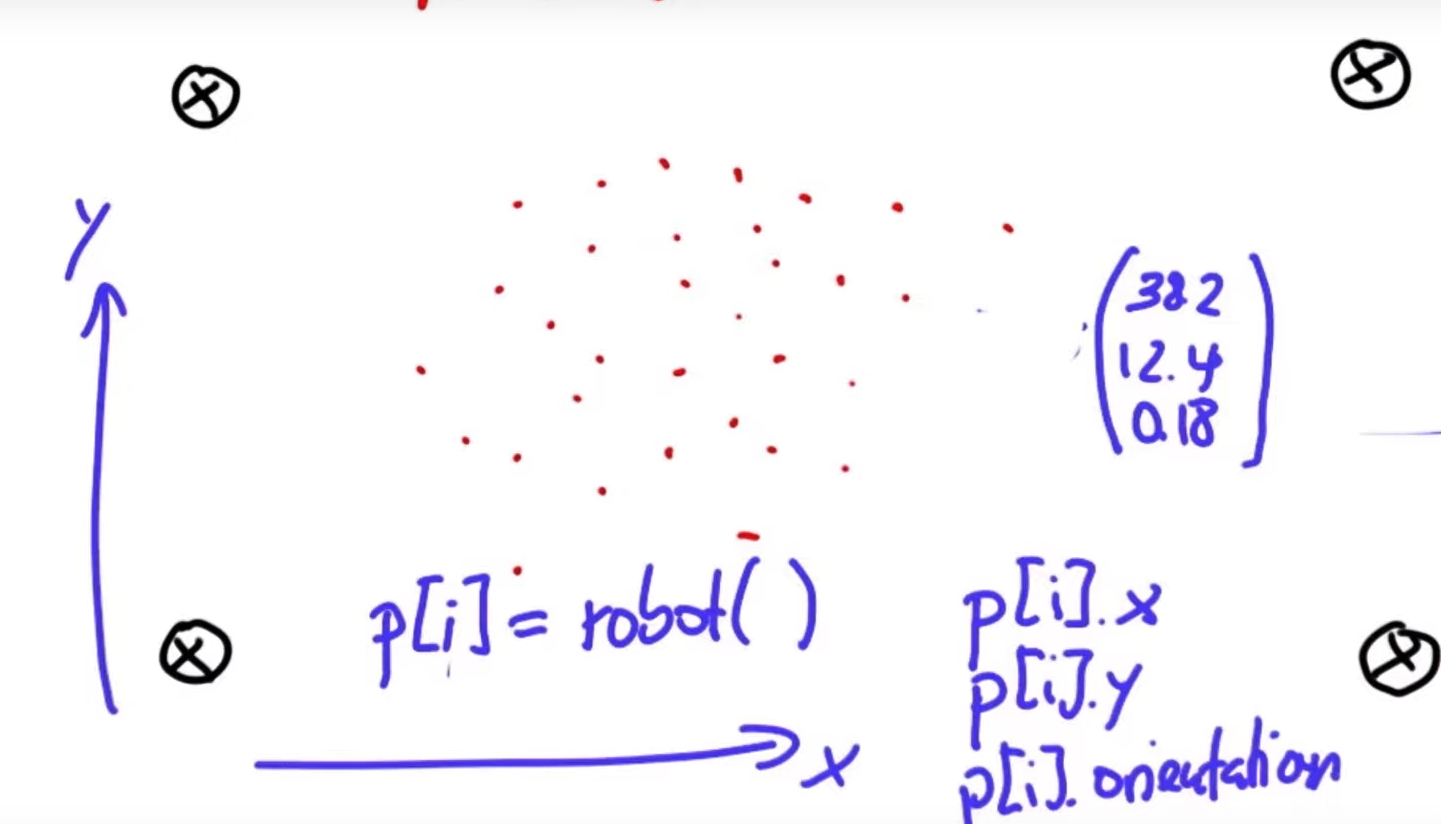 y
38.2
12.4
0.18
p[i] = robot( )
p[i].x
p[i].y
x
p[i].orientation